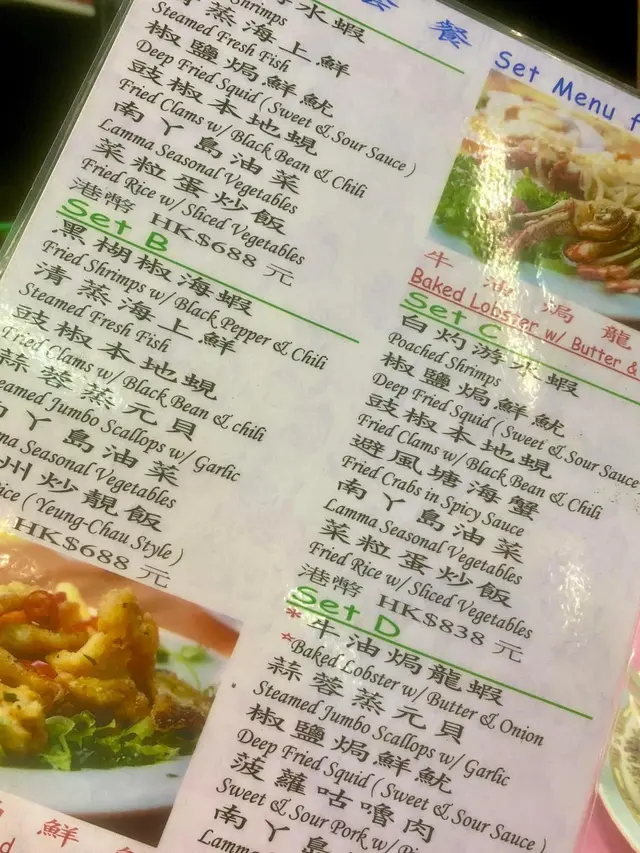 套餐
Set Menu f
水蝦
Shrimps
蒸海上鮮
Steamed Fresh Fish
椒鹽焗鮮魷
Deep Fried Squid ( Sweet & Sour Sauce )
豉椒本地蜆
Fried Clams w/ Black Bean & Chili
南丫島油菜
Lamma Seasonal Vegetables
菜粒蛋炒飯
Fried Rice w/ Sliced Vegetables
港幣 HK$688 元
Set B
黑椒海蝦
Fried Shrimps w/ Black Pepper & Chili
清蒸海上鮮
Steamed Fresh Fish
豉椒本地蜆
Fried Clams w/ Black Bean & chili
蒜蓉蒸元貝
eamed Jumbo Scallops w/ Garlic
丫島油菜
ma Seasonal Vegetables
州炒靚飯
Rice ( Yeung-Chau Style )
HK$688 元
鮮
牛油焗龍
Baked Lobster w/ Butter &
Set C
白灼游水蝦
Poached Shrimps
椒鹽焗鮮魷
Deep Fried Squid ( Sweet & Sour Sauce
豉椒本地蜆
Fried Clams w/ Black Bean & Chili
避風塘海蟹
Fried Crabs in Spicy Sauce
南丫島油菜
Lamma Seasonal Vegetables
菜粒蛋炒飯
Fried Rice w/ Sliced Vegetables
港幣 HK$838 元
Set D
*牛油焗龍蝦
*Baked Lobster w/ Butter & Onion
蒜蓉蒸元貝
Steamed Jumbo Scallops w/ Garlic
椒鹽焗鮮魷
Deep Fried Squid ( Sweet & Sour Sauce )
菠蘿咕嚕肉
Sweet & Sour Pork w/ Pi
南丫島
Lamma